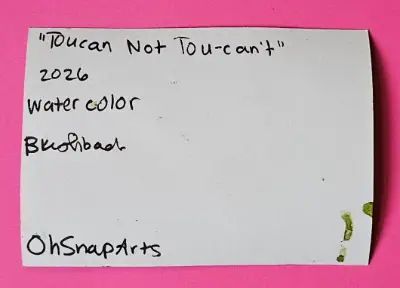 "Toucan Not Tou-can't"
2026
Watercolor
OhSnapArts